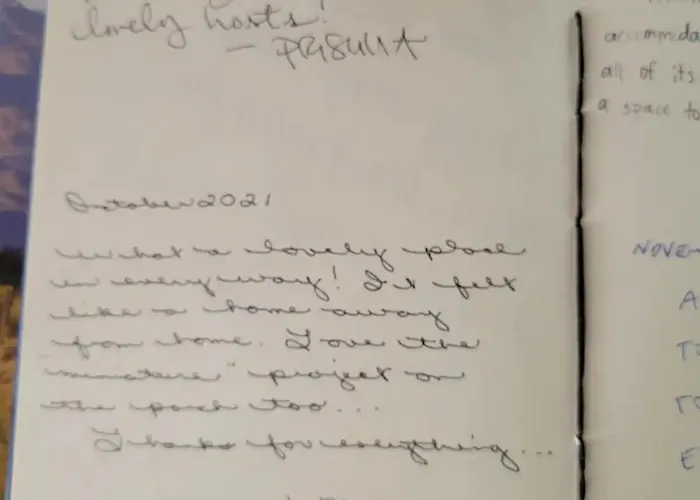 lovely hosts!
— PRISCILLA
October 2021
what a lovely place
in every way! It felt
like a home away
from home. Love the
"miniature" project on
the porch too...
Thanks for everything...
all of its
a space to
NOVE
A
E